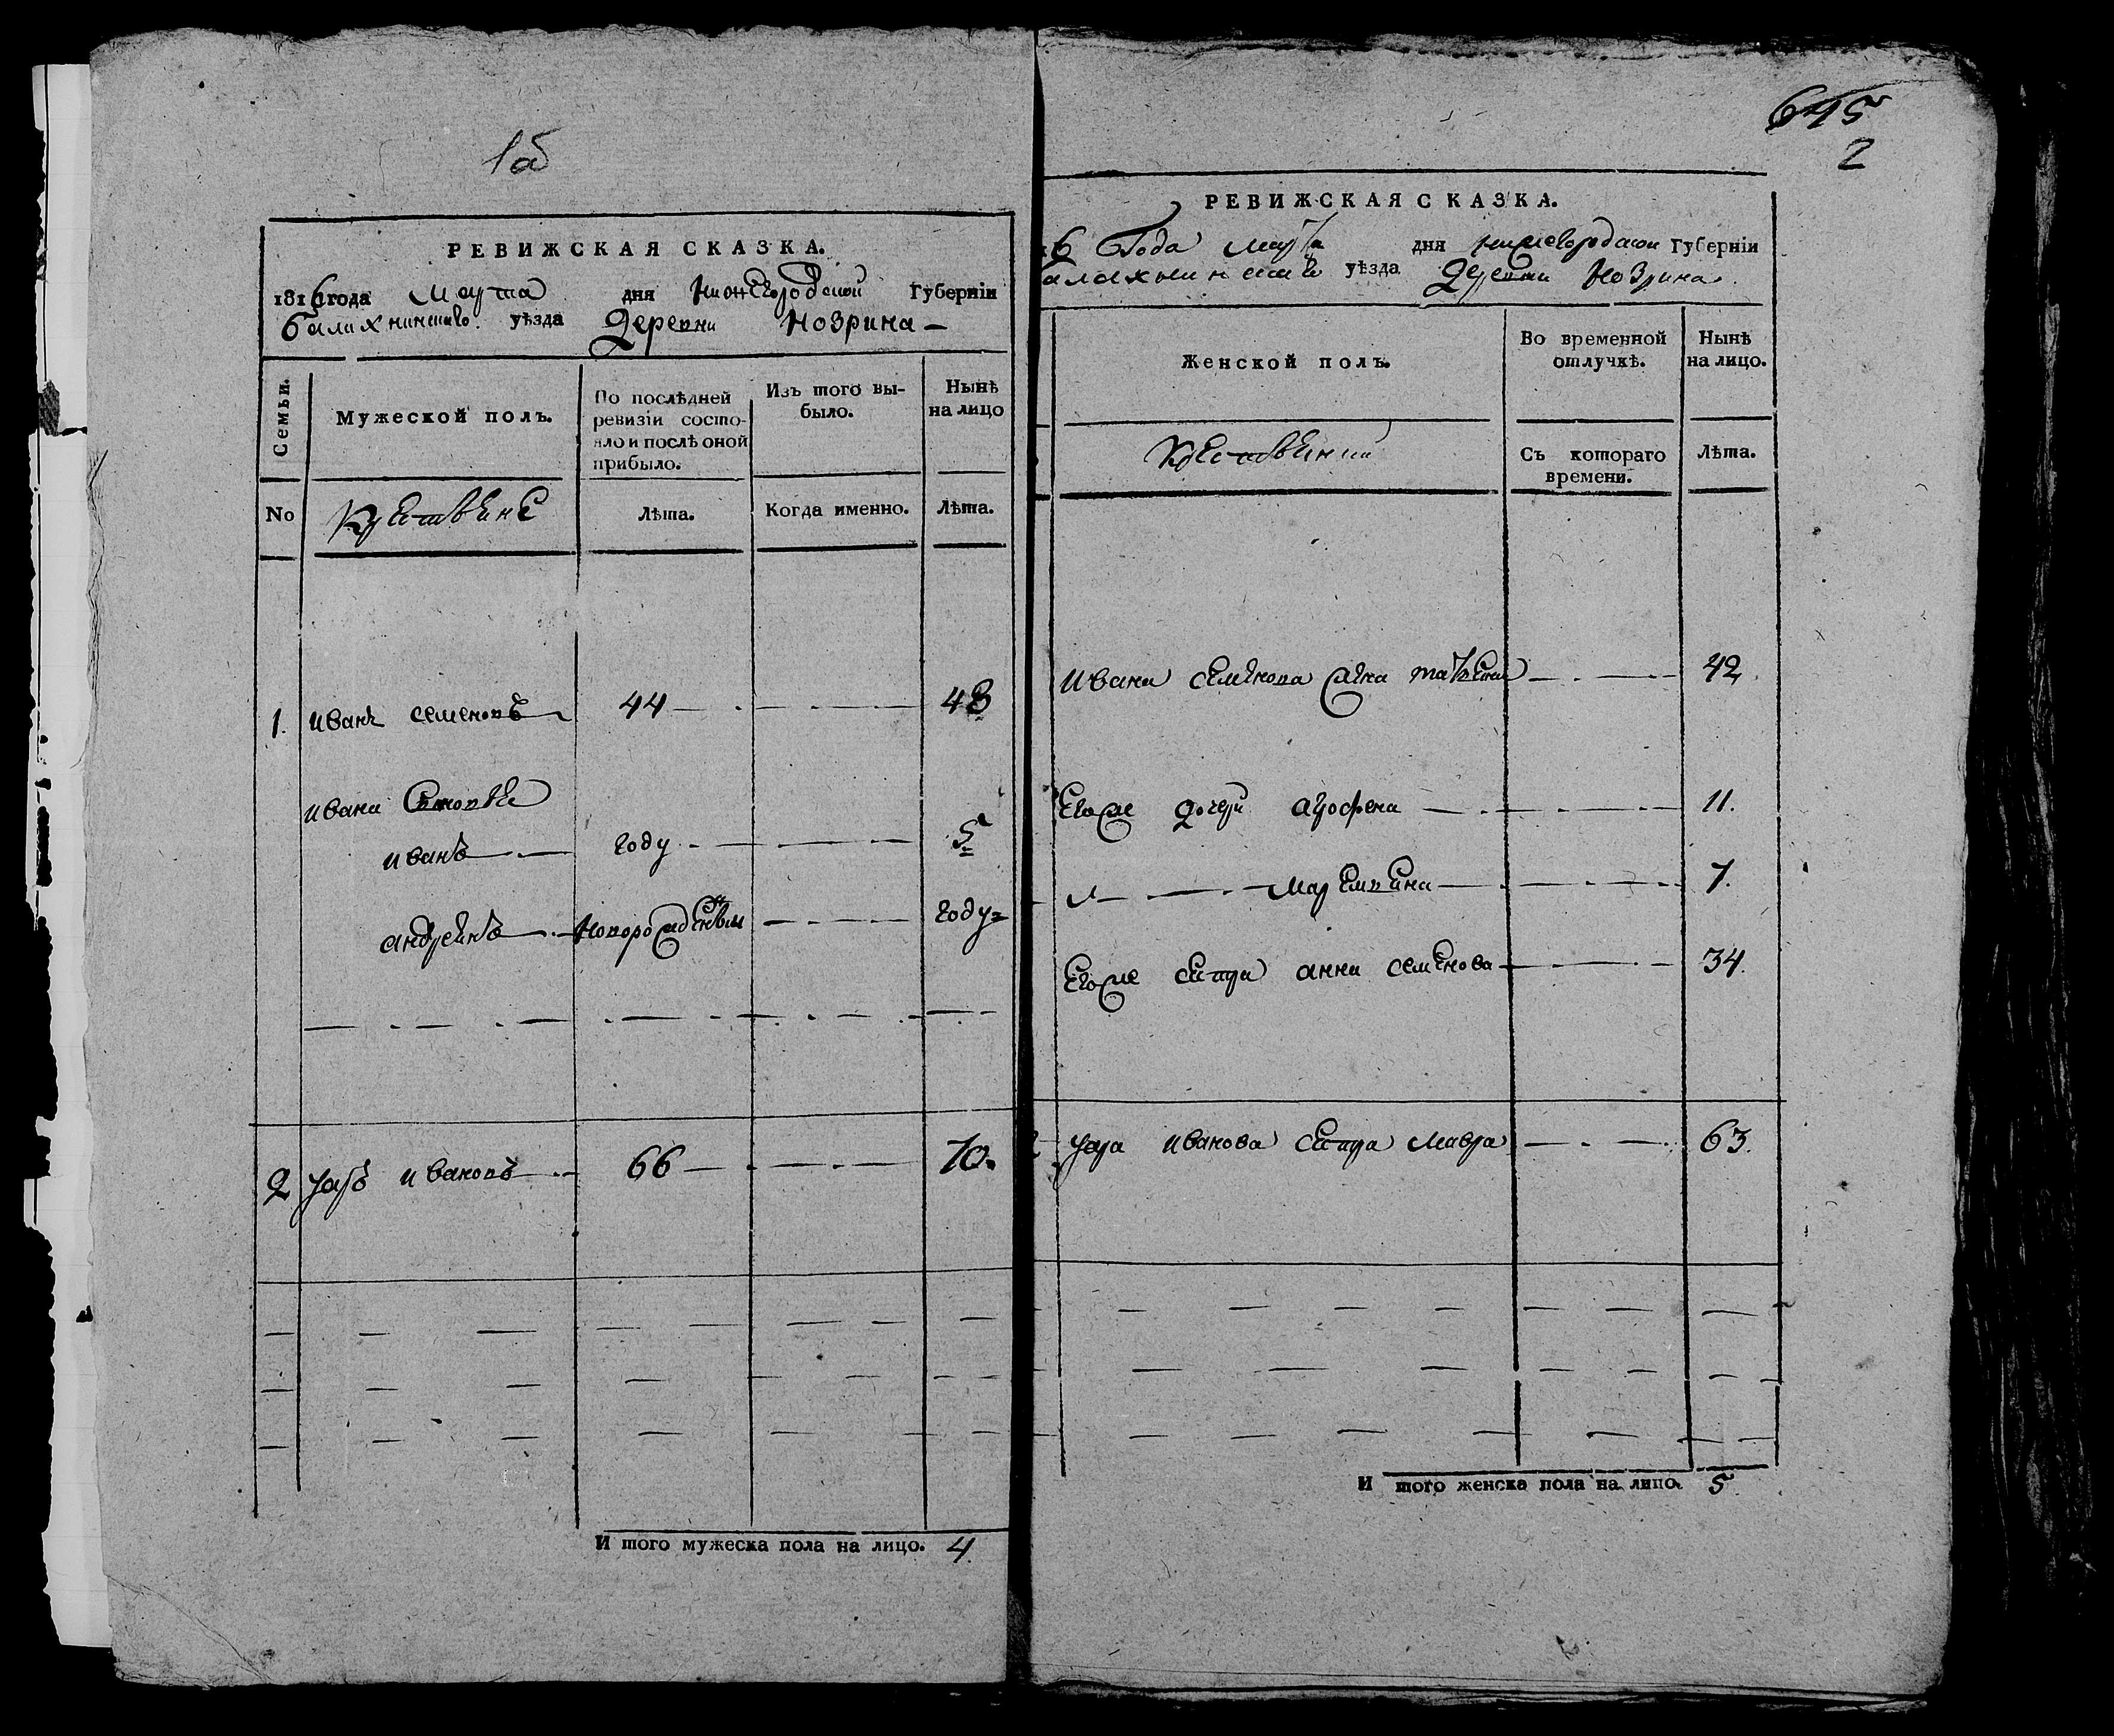 1а
РЕВИЖСКАЯ СКАЗКА.
1816 года Марта дня Нижегородской Губерніи
Балахнинского уѣзда Деревни Нозрина
Семьи. Мужеской полъ. По послѣдней ревизіи состояло и послѣ оной прибыло. Изъ того выбыло. Нынѣ на лицо
No Крестьяне Лѣта. Когда именно. Лѣта.
1. Иванъ Семеновъ 44 48
Ивана Сыновья
Иванъ году 5
Андреянъ Новорожденный году
2 Уаръ Ивановъ 66 70.
И того мужеска пола на лицо. 4.
645
2
РЕВИЖСКАЯ СКАЗКА.
6 Года Марта дня Нижегородской Губерніи
Балахнинскаго уѣзда Деревни Нозрина.
Женской полъ. Во временной отлучкѣ. Нынѣ на лицо.
Съ котораго времени. Лѣта.
Ивана Семенова жена 42
Егоже дочери 11.
7.
Егоже сестра Анна Семенова 34.
Уара Иванова сестра Мавра 63.
И того женска пола на лицо. 5